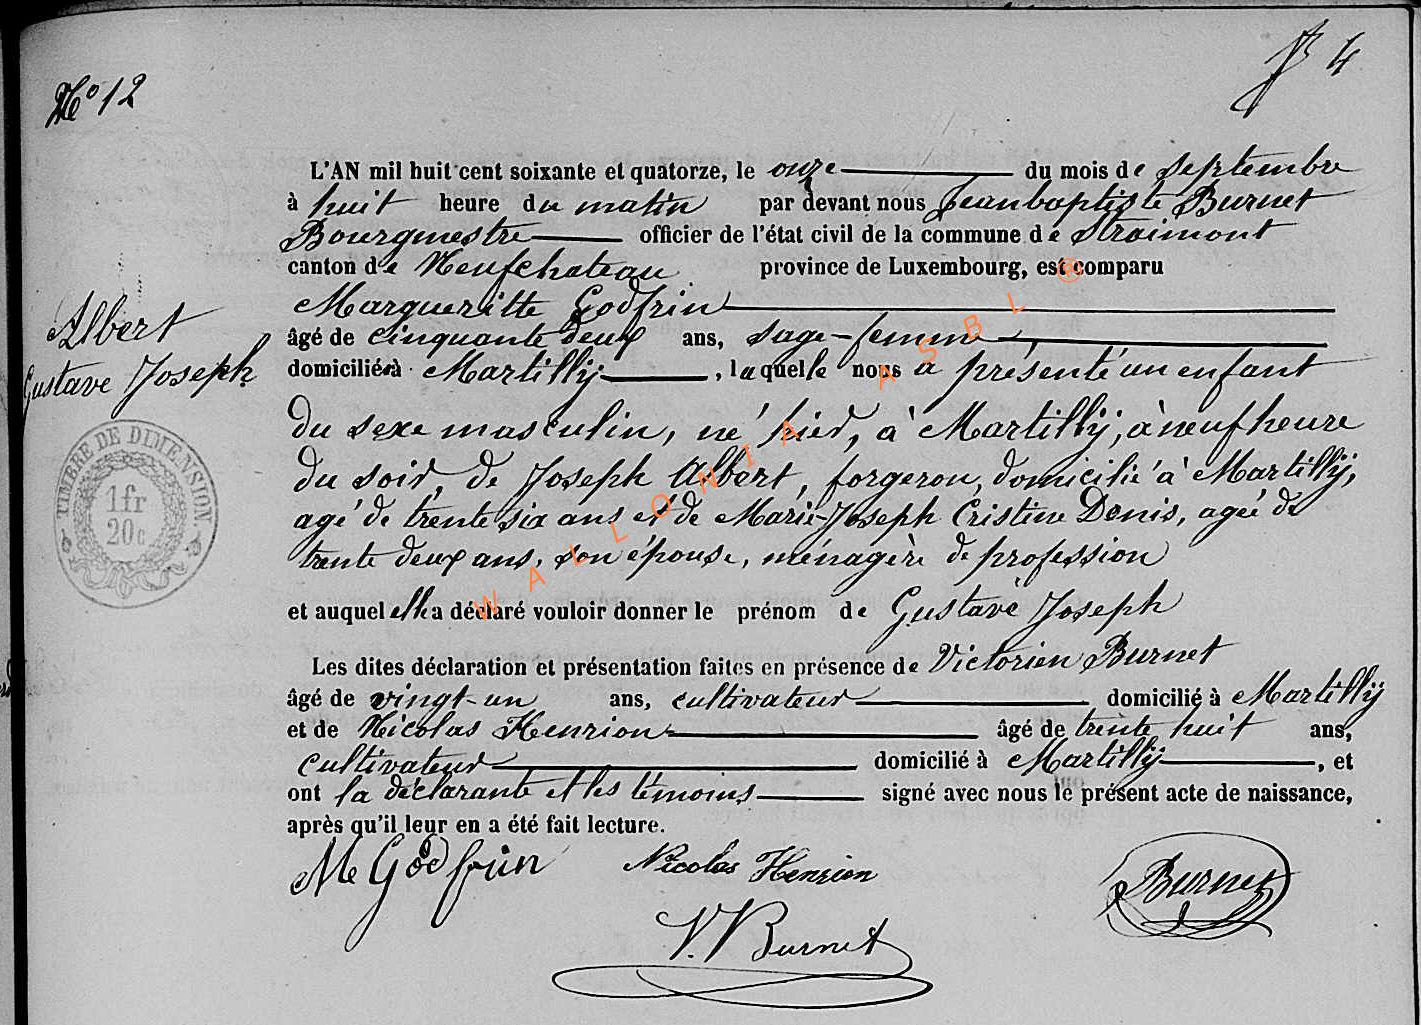 No 12
f 4
L'AN mil huit cent soixante et quatorze, le onze du mois de Septembre
à huit heure du matin par devant nous Jeanbaptiste Burnet
Bourgmestre officier de l'état civil de la commune de Straimont
canton de Neufchateau province de Luxembourg, est comparu
Margueritte Godfrin
âgé de cinquante deux ans, sage-femme
domiciliée à Martilly, laquelle nous a présenté un enfant
du sexe masculin, né hier, à Martilly, à neuf heure
du soir, de Joseph Albert, forgeron, domicilié à Martilly,
agé de trente six ans et de Marie-Joseph Cristine Denis, ageé de
trente deux ans, son épouse, ménagère de profession
et auquel elle a déclaré vouloir donner le prénom de Gustave Joseph
Les dites déclaration et présentation faites en présence de Victorien Burnet
âgé de vingt-un ans, cultivateur domicilié à Martilly
et de Nicolas Henrion âgé de trente huit ans,
cultivateur domicilié à Martilly, et
ont la déclarante et les témoins signé avec nous le présent acte de naissance,
après qu'il leur en a été fait lecture.
Albert
Gustave Joseph
TIMBRE DE DIMENSION.
1fr
20c
M Godfrin Nicolas Henrion Burnet
V. Burnet
WALLONIA ASBL ®